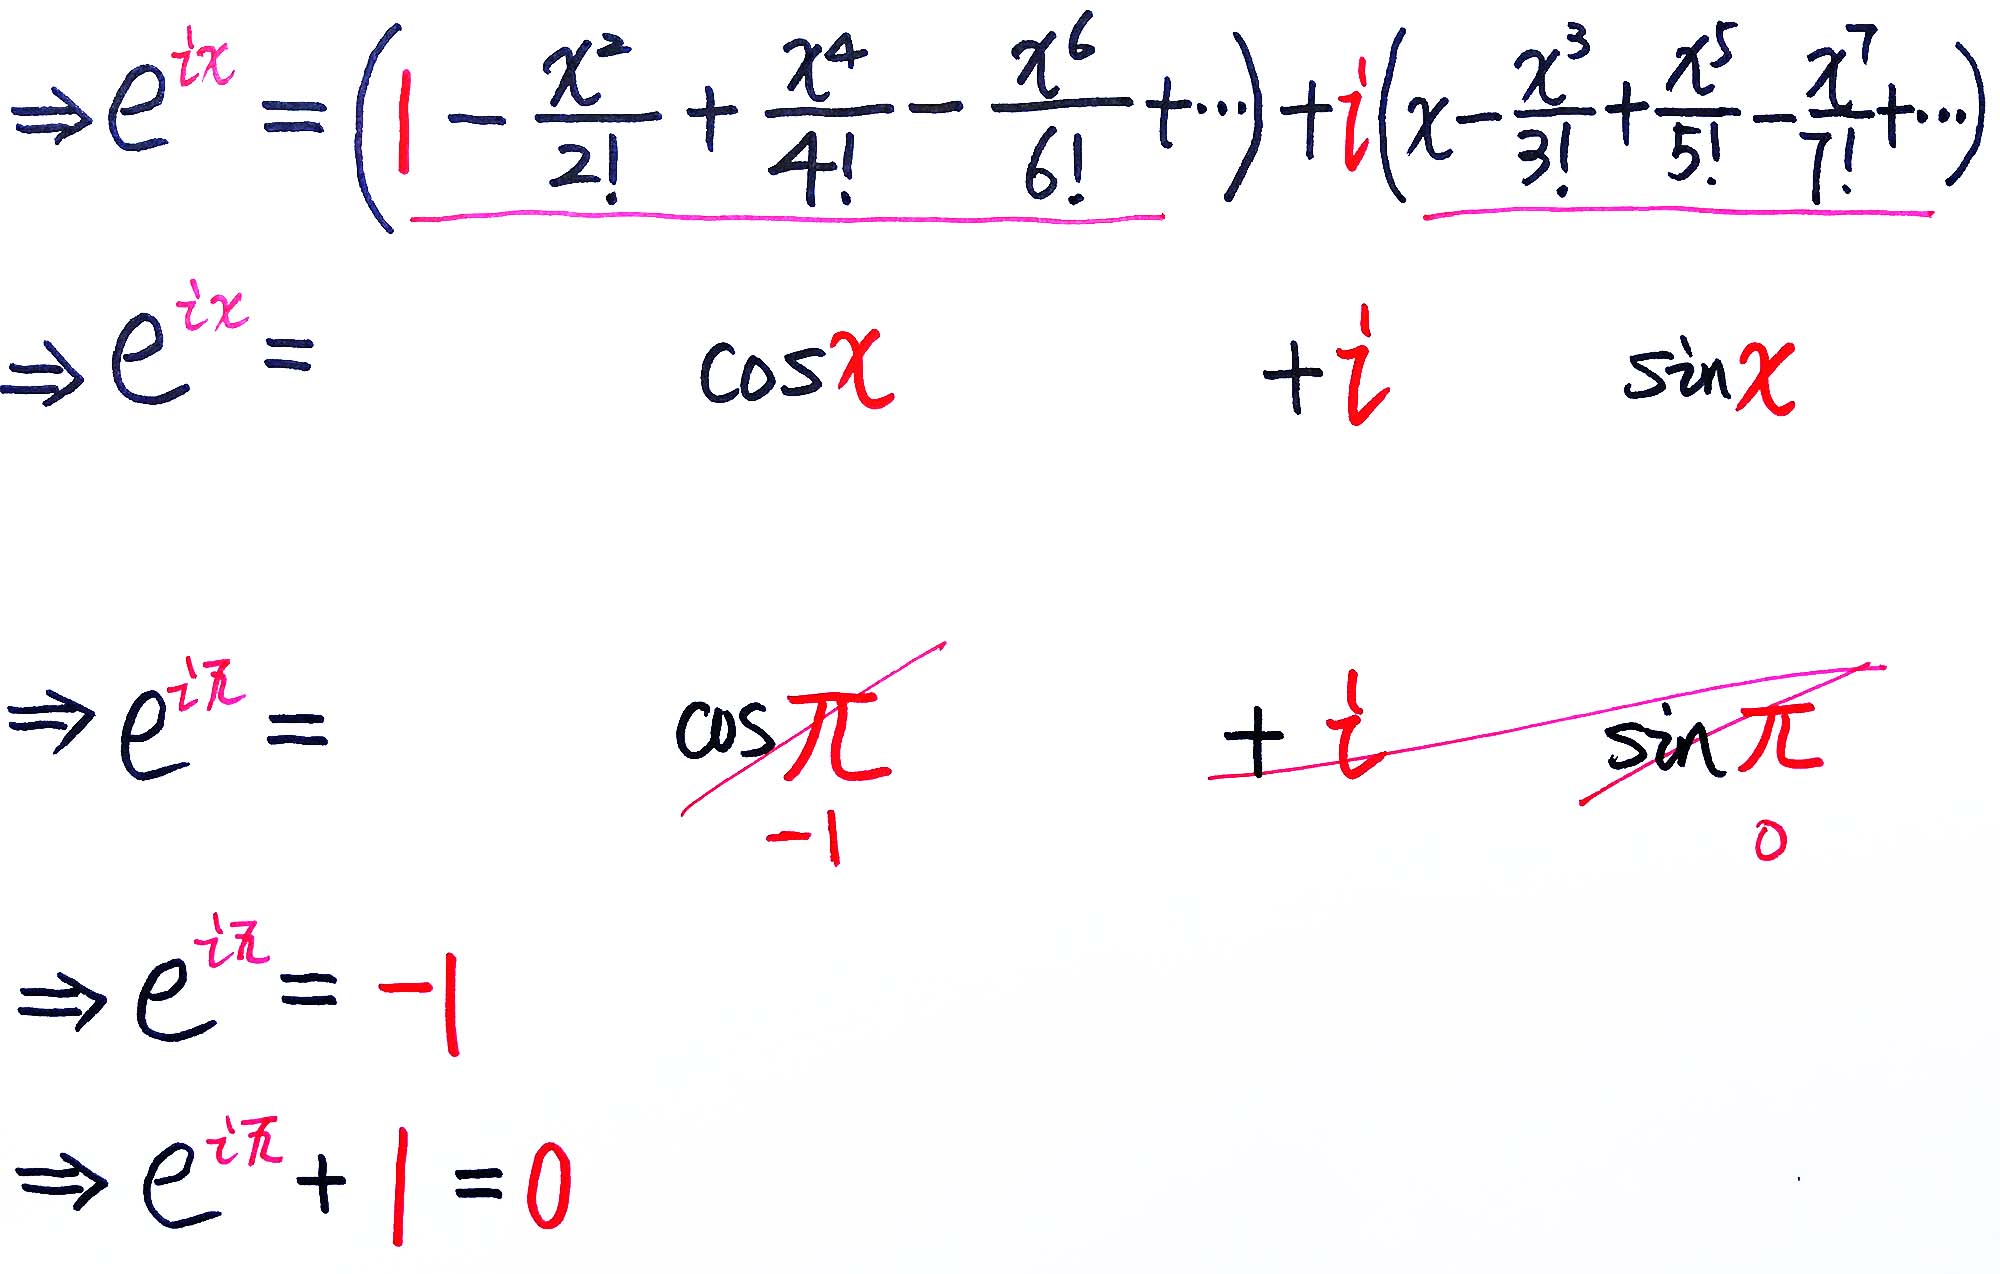 ⇒ e^{ix} = (1 - x²/2! + x⁴/4! - x⁶/6! + ⋯) + i(x - x³/3! + x⁵/5! - x⁷/7! + ⋯)
⇒ e^{ix} = cos x + i sin x
⇒ e^{iπ} = cos π + i sin π
-1 0
⇒ e^{iπ} = -1
⇒ e^{iπ} + 1 = 0